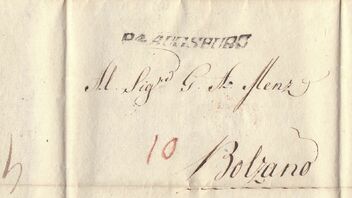 R4 AUGSBURG
Al Sigrd G. A. Menz
10
Bolzano